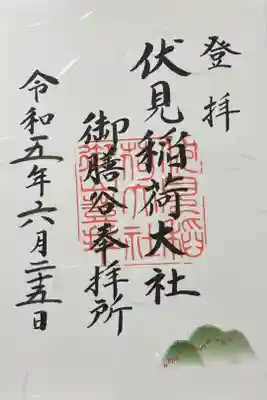 登拝
伏見稲荷大社
御膳谷奉拝所
令和五年六月二十五日